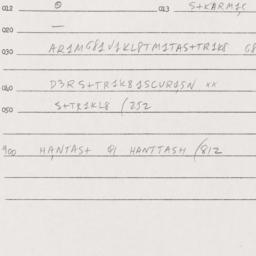 012 0 013 S+KARM1C
020 —
030 AR1MG81V1KL8TM1TAS+TR1K8 G8
040 D3RS+TR1K81SCUR1SN xx
050 S+TR1KL8 /252
900 HANTAS+ 91 HANTTASH /812